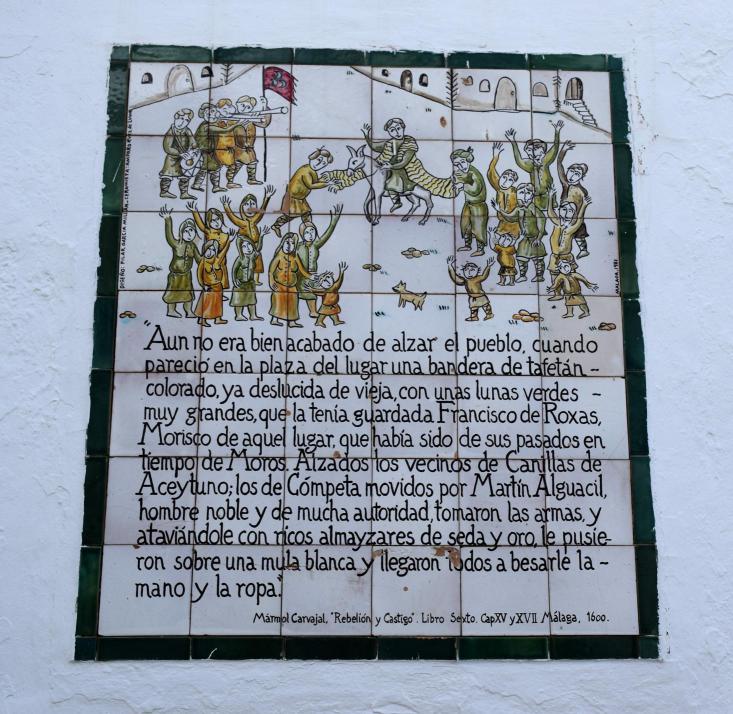 "Aun no era bien acabado de alzar el pueblo, cuando
pareció en la plaza del lugar una bandera de tafetán -
colorado, ya deslucida de vieja, con unas lunas verdes -
muy grandes, que la tenía guardada Francisco de Roxas,
Morisco de aquel lugar, que había sido de sus pasados en
tiempo de Moros. Alzados los vecinos de Canillas de
Aceytuno; los de Cómpeta movidos por Martín Alguacil,
hombre noble y de mucha autoridad, tomaron las armas, y
ataviándole con ricos almayzares de seda y oro, le pusie-
ron sobre una mula blanca y llegaron todos a besarle la -
mano y la ropa."
Mármol Carvajal, "Rebelión y Castigo". Libro Sexto. Cap XV y XVII. Málaga, 1600.
DISEÑO: PILAR GARCIA MILLAN. CERAMISTA:
MALAGA, 198